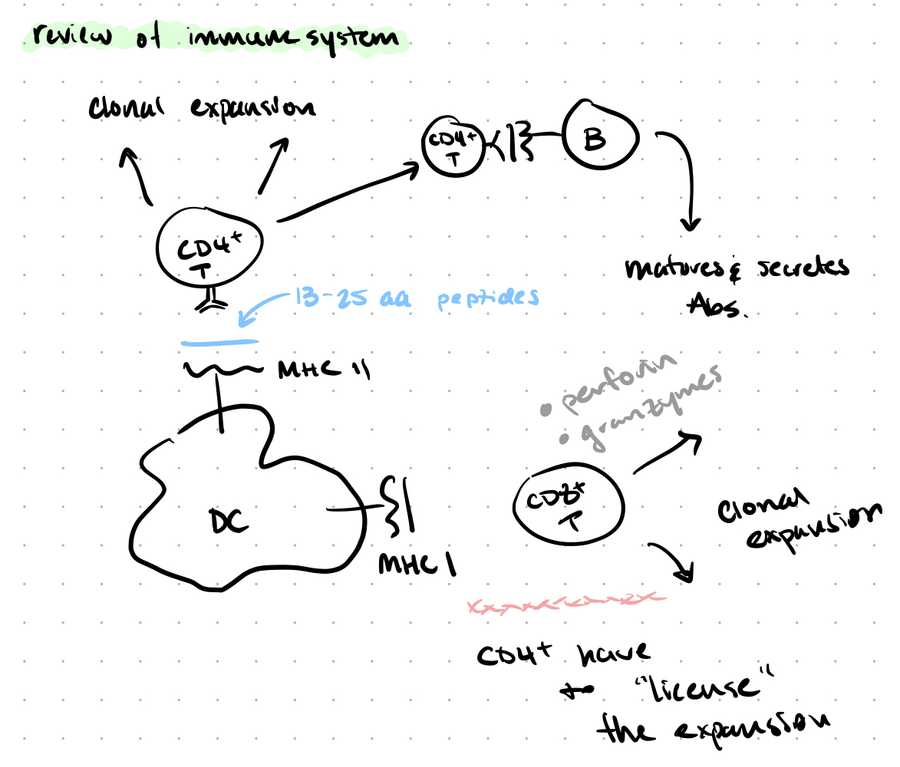 review of immune system
clonal expansion
CD4+
T
B
CD4+
T
matures & secretes
Abs.
13-25 aa peptides
MHC II
• perforin
• granzymes
CD8+
T
clonal
expansion
DC
MHC I
CD4+ have
to "license"
the expansion